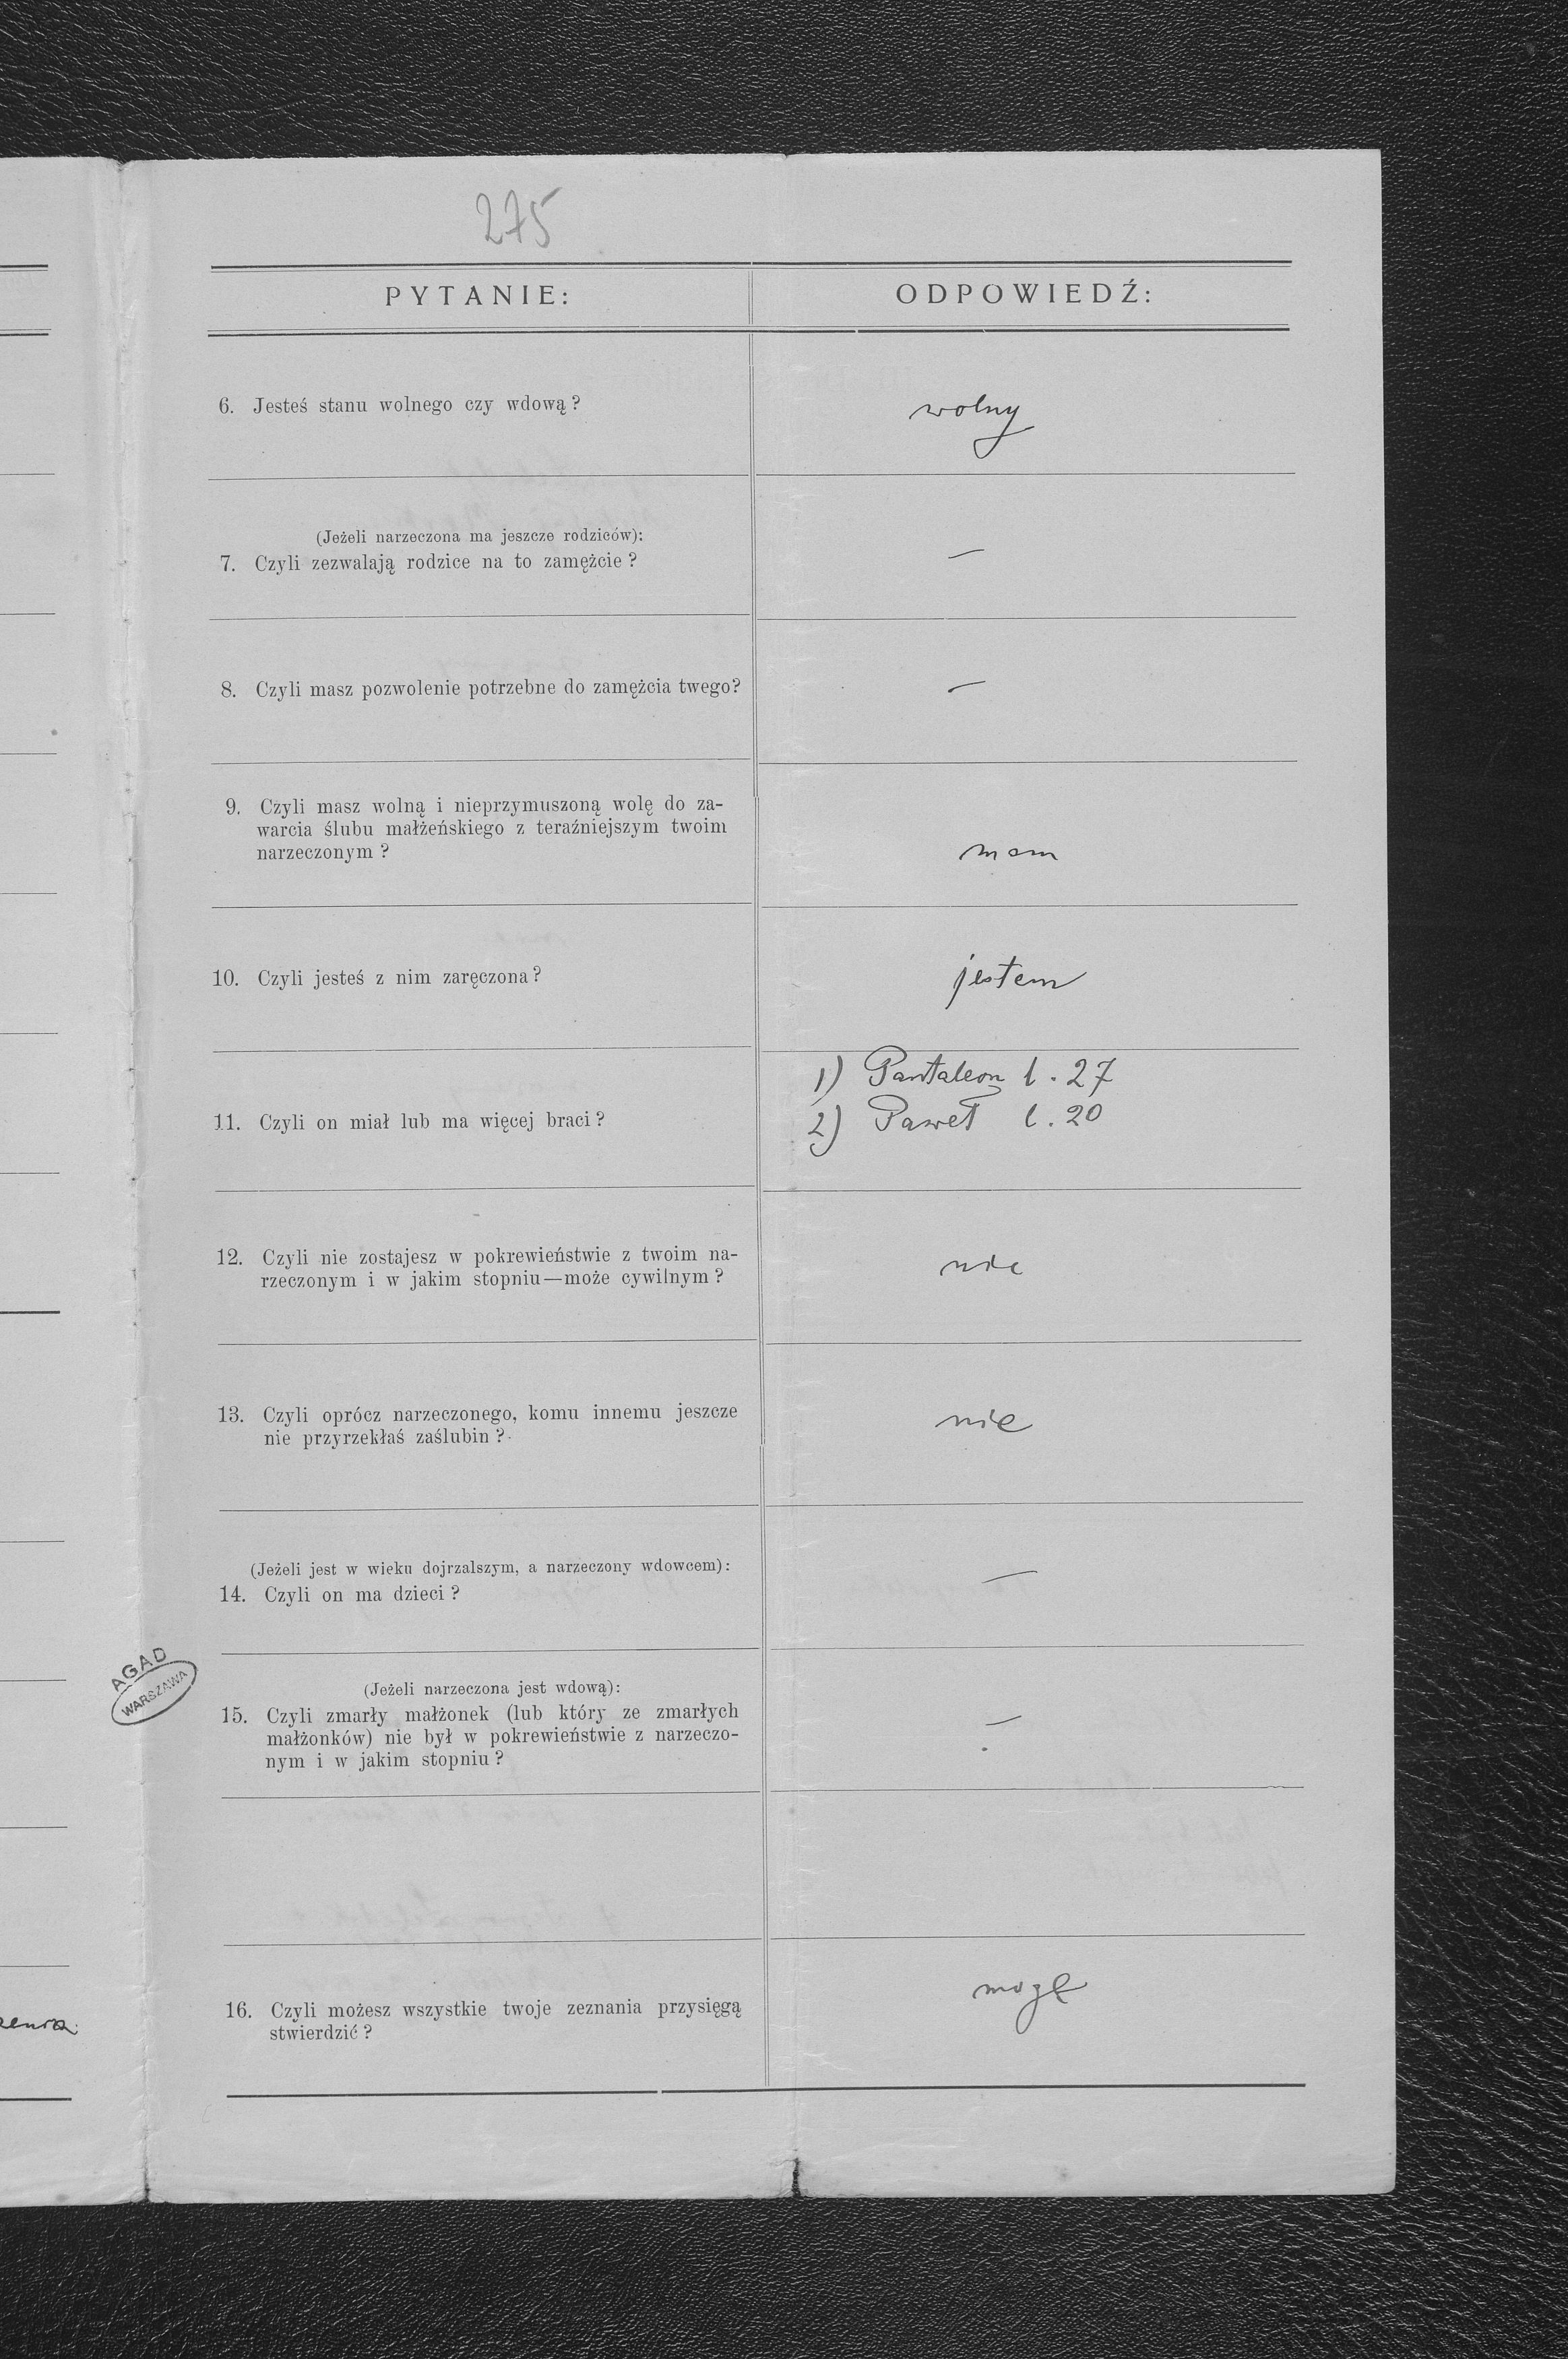 275
PYTANIE:
ODPOWIEDŹ:
6. Jesteś stanu wolnego czy wdową?
wolny
(Jeżeli narzeczona ma jeszcze rodziców):
7. Czyli zezwalają rodzice na to zamężcie?
—
8. Czyli masz pozwolenie potrzebne do zamężcia twego?
—
9. Czyli masz wolną i nieprzymuszoną wolę do za-
warcia ślubu małżeńskiego z teraźniejszym twoim
narzeczonym?
mam
10. Czyli jesteś z nim zaręczona?
jestem
11. Czyli on miał lub ma więcej braci?
1) Pantaleon l. 27
2) Paweł l. 20
12. Czyli nie zostajesz w pokrewieństwie z twoim na-
rzeczonym i w jakim stopniu—może cywilnym?
nie
13. Czyli oprócz narzeczonego, komu innemu jeszcze
nie przyrzekłaś zaślubin?
nie
(Jeżeli jest w wieku dojrzalszym, a narzeczony wdowcem):
14. Czyli on ma dzieci?
—
(Jeżeli narzeczona jest wdową):
15. Czyli zmarły małżonek (lub który ze zmarłych
małżonków) nie był w pokrewieństwie z narzeczo-
nym i w jakim stopniu?
—
16. Czyli możesz wszystkie twoje zeznania przysięgą
stwierdzić?
mogę
AGAD
WARSZAWA